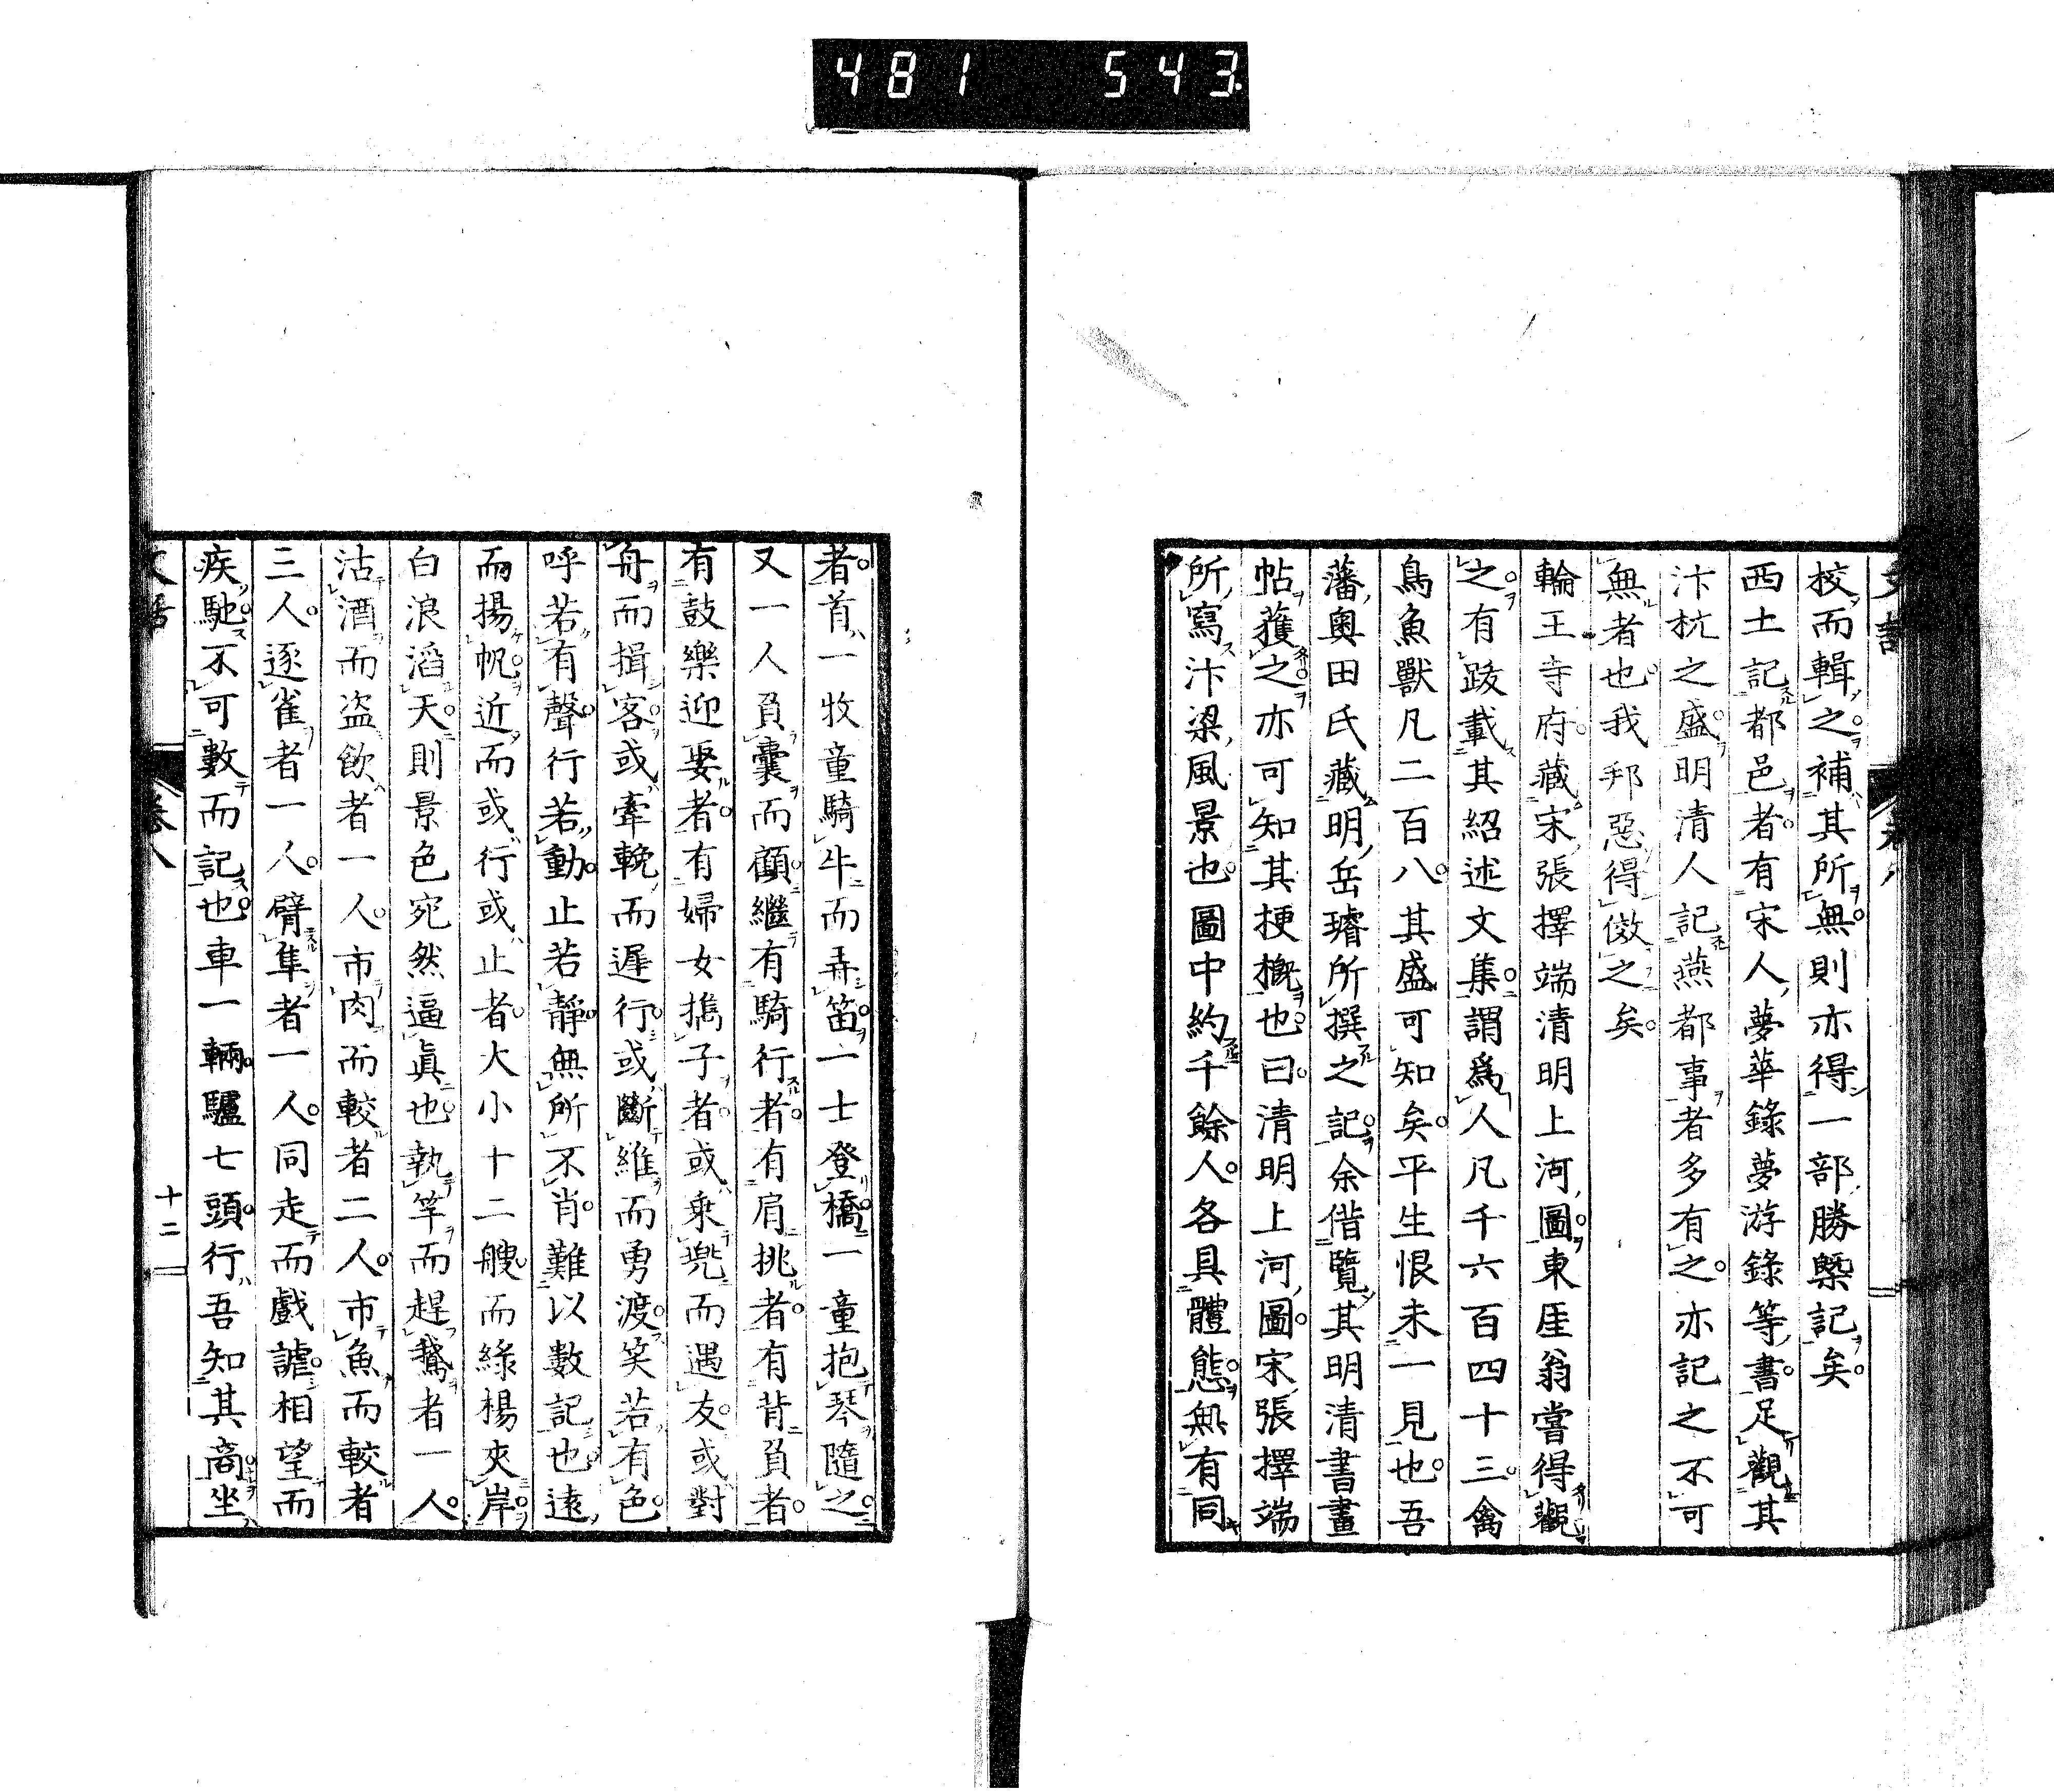 481 543
校而輯之補其所無則亦得一部勝槩記矣
西土記都邑者有宋人夢華錄夢游錄等書足觀其
汴杭之盛明清人記燕都事者多有之亦記之不可
無者也我邦惡得倣之矣
輪王寺府藏宋張擇端清明上河圖東厓翁嘗得觀
之有跋載其紹述文集謂爲人凡千六百四十三禽
鳥魚獸凡二百八其盛可知矣平生恨未一見也吾
藩奧田氏藏明岳璿所撰之記余借覽其明清書畫
帖獲之亦可知其梗概也曰清明上河圖宋張擇端
所寫汴梁風景也圖中約千餘人各具體態無有同
者首一牧童騎牛而弄笛一士登橋一童抱琴隨之
又一人負囊而顧繼有騎行者有肩挑者有背負者
有鼓樂迎娶者有婦女攜子者或乘兠而遇友或對
舟而揖客或牽輓而遲行或斷維而勇渡笑若有色
呼若有聲行若動止若靜無所不肖難以數記也遠
而揚帆近而或行或止者大小十二艘而綠楊夾岸
白浪滔天則景色宛然逼眞也執竿而趕鵞者一人
沽酒而盜飲者一人市肉而較者二人市魚而較者
三人逐雀者一人臂隼者一人同走而戲謔相望而
疾馳不可數而記也車一輛驢七頭行吾知其商坐
卷八
十二